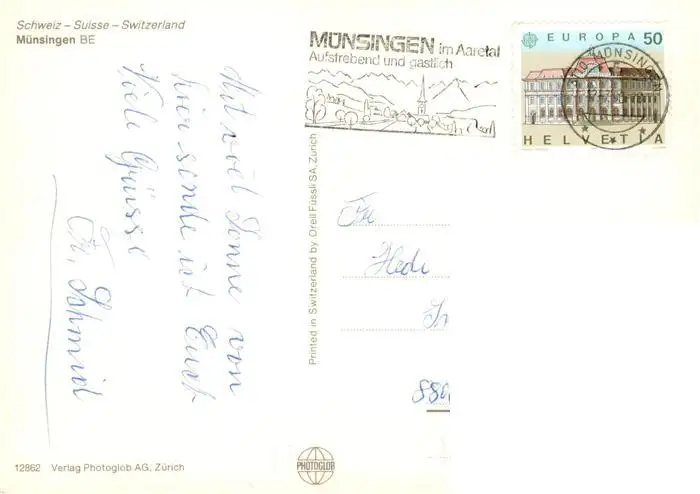 Schweiz – Suisse – Switzerland
Münsingen BE
MÜNSINGEN im Aaretal
Aufstrebend und gastlich
EUROPA 50
3110 MÜNSINGEN
HELVETIA
Mit viel Sonne von
hier sende ich Euch
Viele Grüsse
Fr. Schmid
Fr
Hedi
880
Printed in Switzerland by Orell Füssli SA, Zürich
12862 Verlag Photoglob AG, Zürich
PHOTOGLOB